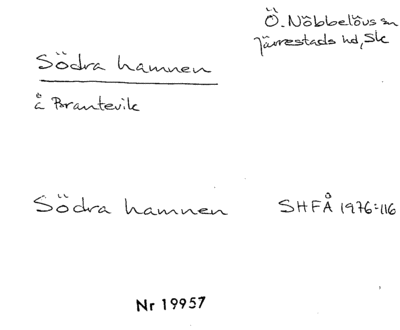 Ö. Nöbbelövs sn
Järrestads hd, Sk
Södra hamnen
å Brantevik
Södra hamnen
SHFÅ 1976:116
Nr 19957